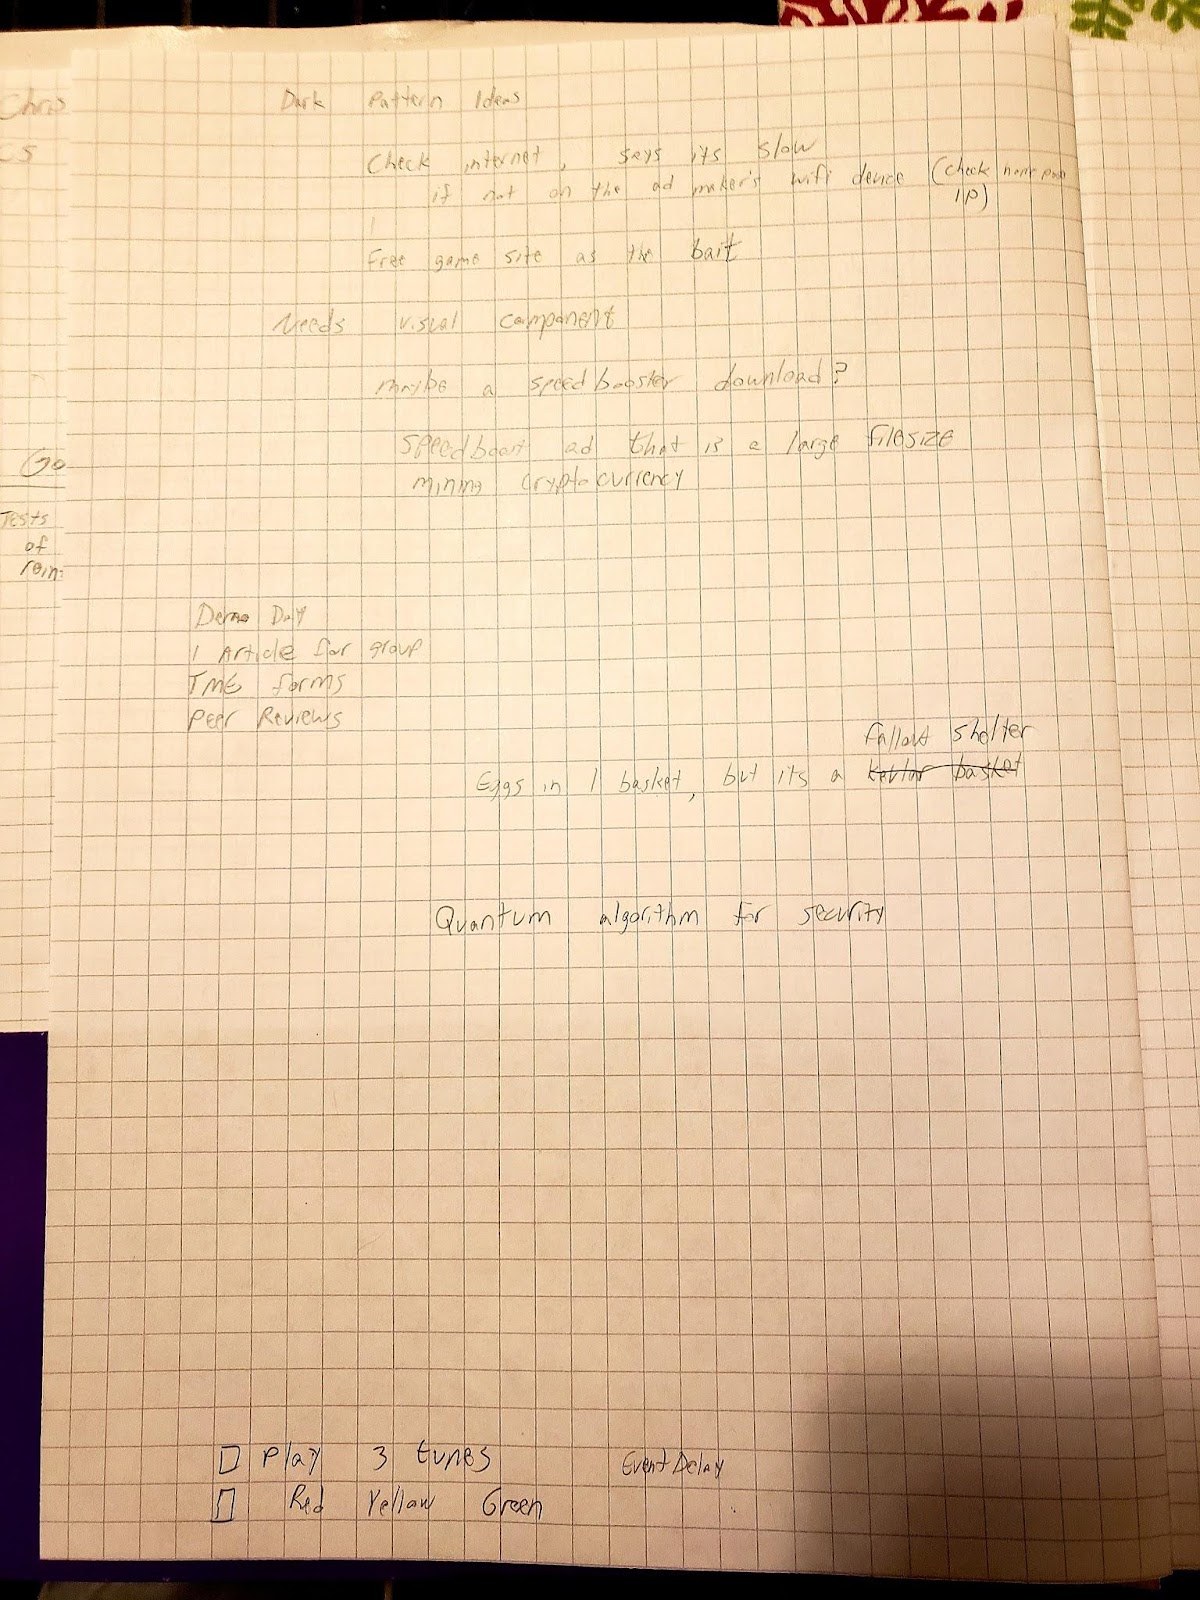 Dark Pattern Ideas
Check internet, says its slow
if not on the ad maker's wifi device (check
IP)
Free game site as the bait
Needs visual component
maybe a speedbooster download?
speedboost ad that is a large filesize
mining cryptocurrency
Demo Day
1 Article for group
forms
Peer Reviews
fallout shelter
Eggs in 1 basket, but its a kevlar basket
Quantum algorithm for security
Play 3 tunes
Event Delay
Red Yellow Green
Chris
CS
Go
Tests
of